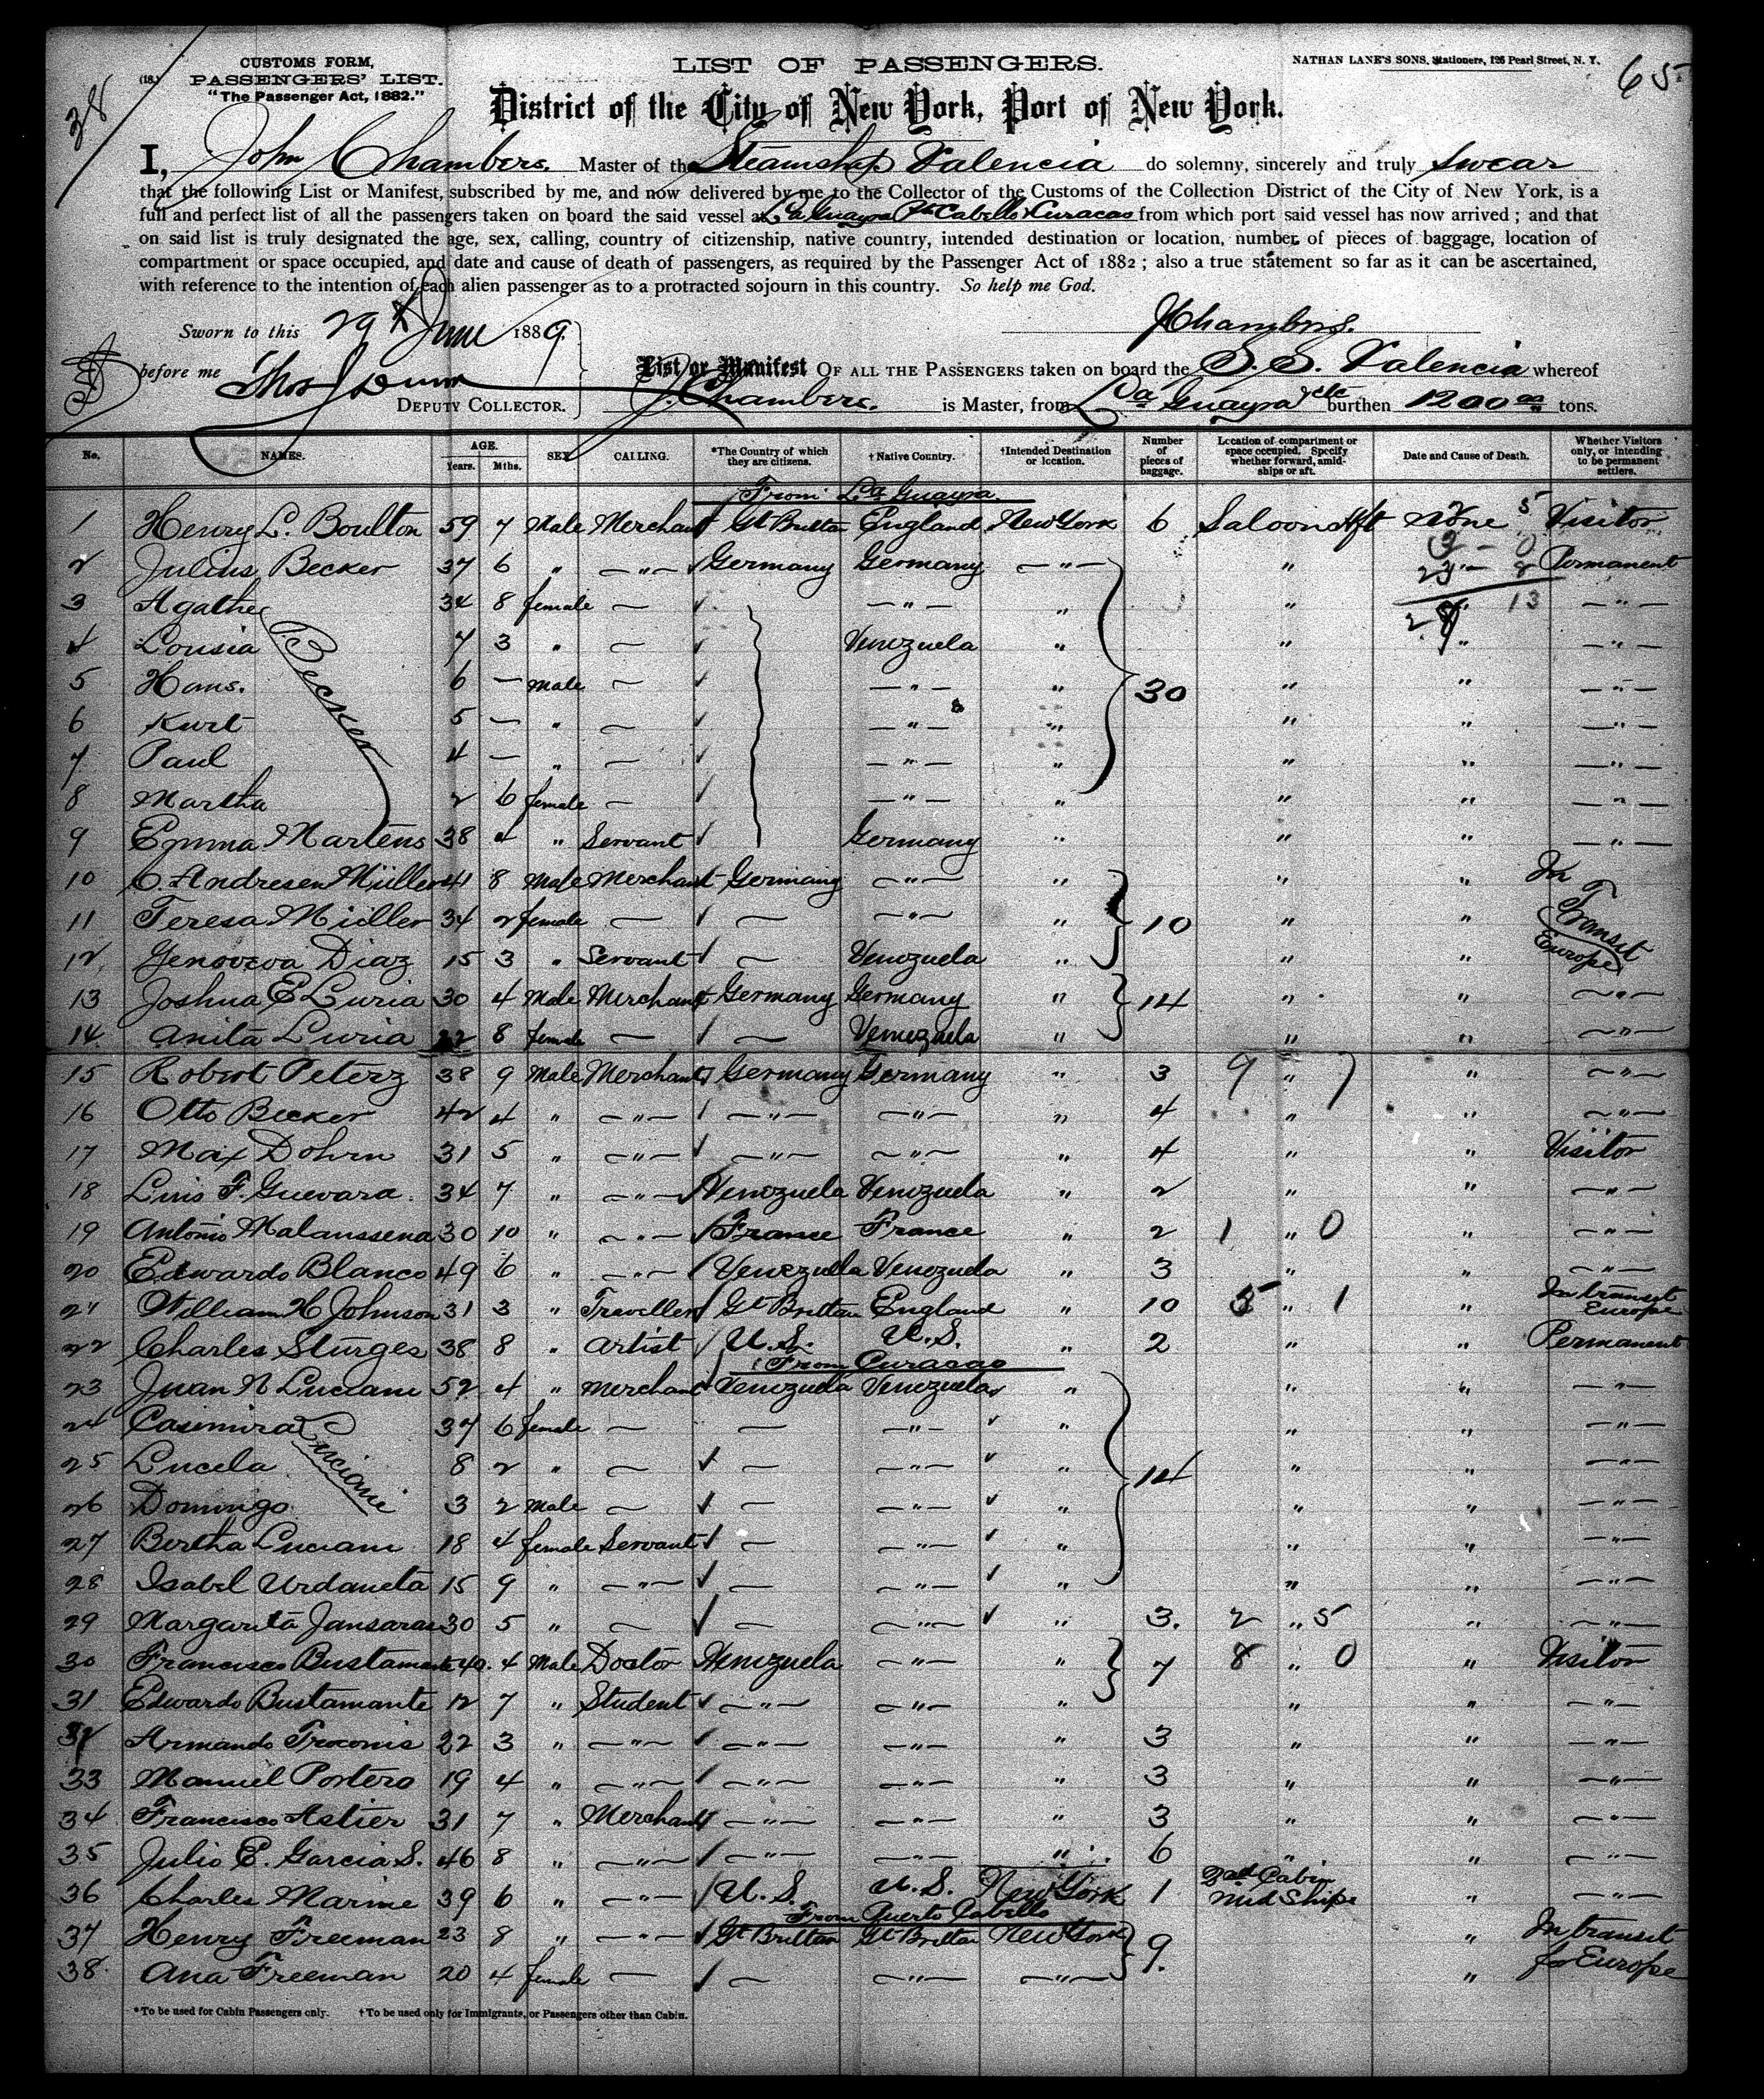 CUSTOMS FORM,
(18.) PASSENGERS' LIST.
"The Passenger Act, 1882."
38
LIST OF PASSENGERS.
NATHAN LANE'S SONS, Stationers, 126 Pearl Street, N. Y.
65
District of the City of New York, Port of New York.
I, John Chambers. Master of the Steamship Valencia do solemny, sincerely and truly swear
that the following List or Manifest, subscribed by me, and now delivered by me to the Collector of the Customs of the Collection District of the City of New York, is a
full and perfect list of all the passengers taken on board the said vessel at La Guayra Pto Cabello & Curacao from which port said vessel has now arrived ; and that
on said list is truly designated the age, sex, calling, country of citizenship, native country, intended destination or location, number of pieces of baggage, location of
compartment or space occupied, and date and cause of death of passengers, as required by the Passenger Act of 1882 ; also a true statement so far as it can be ascertained,
with reference to the intention of each alien passenger as to a protracted sojourn in this country. So help me God.
Sworn to this 29th June 1889.
JChambers.
before me Thos J Dunn
DEPUTY COLLECTOR.
List or Manifest OF ALL THE PASSENGERS taken on board the S. S. Valencia whereof
J. Chambers. is Master, from La Guayra &c burthen 1200 00 tons.
No. NAMES. AGE. Years. Mths. SEX. CALLING. *The Country of which they are citizens. † Native Country. †Intended Destination or location. Number of pieces of baggage. Location of compartment or space occupied. Specify whether forward, amidships or aft. Date and Cause of Death. Whether Visitors only, or intending to be permanent settlers.
From La Guayra.
1 Henry L. Boulton 59 7 Male Merchant Gt Brittan England New York 6 Saloon Aft None 5 Visitor
2 Julius Becker 37 6 " — " — Germany Germany — " — " Permanent
3 Agathe Becker 34 8 female — — " — " " 13 — " —
4 Lousia 7 3 " — Venezuela " " 28 " — " —
5 Hans. 6 — male — — " — " 30 " " — " —
6 Kurt 5 — " — — " — " " " — " —
7 Paul 4 — " — — " — " " " — " —
8 Martha 2 6 female — — " — " " " — " —
9 Emma Martens 38 4 " Servant Germany " " " — " —
10 C. Andresen Müller 41 8 Male Merchant Germany — " — " " " In
11 Teresa Müller 34 2 female — — — " — " 10 " " Transit
12 Genoveva Diaz 15 3 " Servant — Venezuela " " " Europe
13 Joshua E Luria 30 4 Male Merchant Germany Germany " 14 " " — " —
14. Anita Luria 22 8 female — — Venezuela " " " — " —
15 Robert Peterz 38 9 Male Merchant Germany Germany " 3 9 " 7 " — " —
16 Otto Becker 42 4 " — " — — " — — " — " 4 " " — " —
17 Max Dohrn 31 5 " — " — — " — — " — " 4 " " Visitor
18 Luis F. Guevara. 34 7 " — " — Venezuela Venezuela " 2 " " — " —
19 Antonio Malaussena 30 10 " — " — France France " 2 1 " 0 " — " —
20 Edwardo Blanco 49 6 " — " — Venezuela Venezuela " 3 " " — " —
21 William H Johnson 31 3 " Traveller Gt Brittan England " 10 5 " 1 " In transit Europe
22 Charles Sturges 38 8 " Artist U. S. U. S. " 2 " " Permanent
From Curacao
23 Juan N Luciani 52 4 " Merchant Venezuela Venezuela " " " — " —
24 Casimira Luciani 37 6 female — — — " — " " " — " —
25 Lucela 8 2 " — — — " — " 14 " " — " —
26 Domingo 3 2 Male — — — " — " " " — " —
27 Bertha Luciani 18 4 female Servant — — " — " " " — " —
28 Isabel Urdaneta 15 9 " — " — — — " — " " " — " —
29 Margarita Jansaras 30 5 " — — — " — " 3. 2 " 5 " — " —
30 Francisco Bustamante 40. 4 Male Doctor Venezuela — " — " 7 8 " 0 " Visitor
31 Edwardo Bustamante 12 7 " Student — " — — " — " " " — " —
32 Armando Troconis 22 3 " — " — — " — — " — " 3 " " — " —
33 Manuel Portero 19 4 " — " — — " — — " — " 3 " " — " —
34 Francisco Astier 31 7 " Merchant — " — — " — " 3 " " — " —
35 Julio E. Garcia S. 46 8 " — " — — " — — " — " 6 " " — " —
36 Charles Marine 39 6 " — " — U. S. U. S. New York 1 2nd Cabin Mid Ships " — " —
From Puerto Cabello
37 Henry Freeman 23 8 " — " — Gt Brittan Gt Brittan New York 9. " In transit
38. Ana Freeman 20 4 female — — — " — — " — " for Europe
*To be used for Cabin Passengers only. †To be used only for Immigrants, or Passengers other than Cabin.